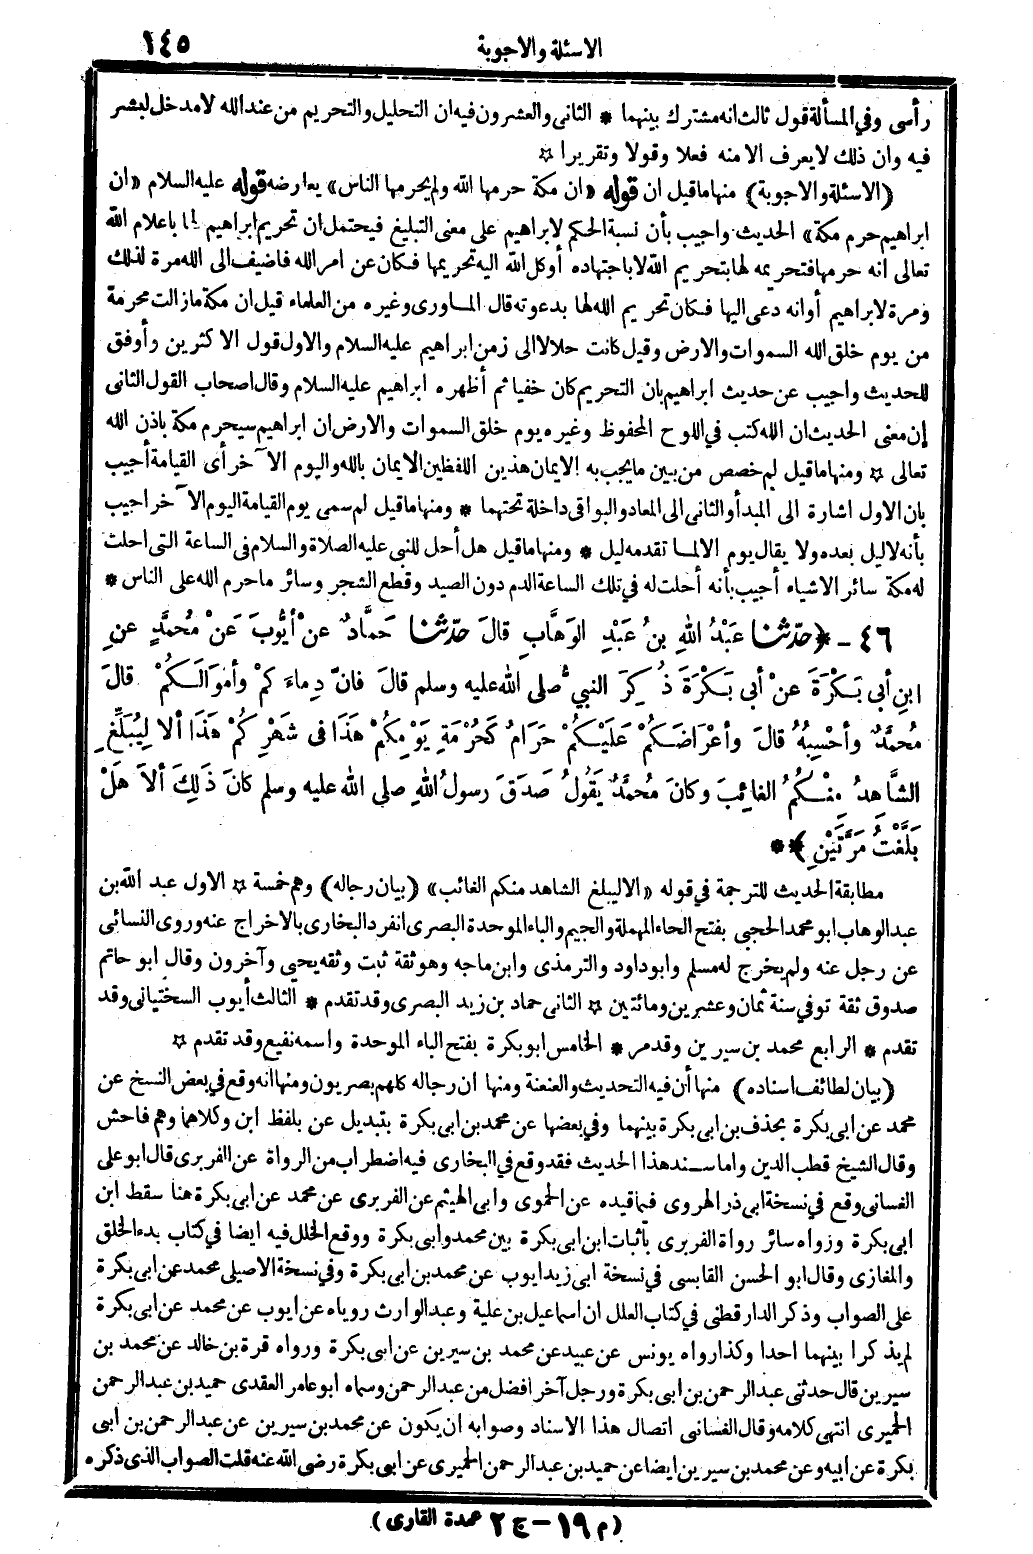 الاسئلة والاجوبة ١٤٥
رأسى وفي المسألة قول ثالث انه مشترك بينهما * الثانى والعشرون فيه ان التحليل والتحريم من عند الله لا مدخل لبشر
فيه وان ذلك لا يعرف الا منه فعلا وقولا وتقريرا ☆
(الاسئلة والاجوبة) منها ما قيل ان قوله «ان مكة حرمها الله ولم يحرمها الناس» يعارضه قوله عليه السلام «ان
ابراهيم حرم مكة» الحديث واجيب بأن نسبة الحكم لابراهيم على معنى التبليغ فيحتمل ان تحريم ابراهيم لها باعلام الله
تعالى انه حرمها فتحريمه لها بتحريم الله لا باجتهاده أو كل الله اليه تحريمها فكان عن امر الله فاضيف الى الله مرة لذلك
ومرة لابراهيم أو انه دعى اليها فكان تحريم الله لها بدعوته قال الماوردى وغيره من العلماء قيل ان مكة مازالت محرمة
من يوم خلق الله السموات والارض وقيل كانت حلالا الى زمن ابراهيم عليه السلام والاول قول الاكثرين وأوفق
للحديث واجيب عن حديث ابراهيم بان التحريم كان خفيا ثم أظهره ابراهيم عليه السلام وقال اصحاب القول الثانى
إن معنى الحديث ان الله كتب في اللوح المحفوظ وغيره يوم خلق السموات والارض ان ابراهيم سيحرم مكة باذن الله
تعالى ☆ ومنها ما قيل لم خصص من بين ما يجب به الايمان هذين اللفظين الايمان بالله واليوم الآخر أى القيامة أجيب
بان الاول اشارة الى المبدأ والثانى الى المعاد والبواقى داخلة تحتهما * ومنها ما قيل لم سمى يوم القيامة اليوم الآخر اجيب
بأنه لا ليل بعده ولا يقال يوم الا لما تقدمه ليل * ومنها ما قيل هل أحل للنبي عليه الصلاة والسلام في الساعة التى احلت
له مكة سائر الاشياء أجيب بأنه أحلت له في تلك الساعة الدم دون الصيد وقطع الشجر وسائر ما حرم الله على الناس *
٤٦ - ﴿حدّثنا عَبْدُ اللهِ بنُ عَبْدِ الوَهَّابِ قالَ حدّثنا حَمادٌ عنْ أيُّوبَ عَنْ مُحمَّدٍ عنِ
ابنِ أبي بَكْرَةَ عنْ أبي بَكْرَةَ ذُكِرَ النبيُّ صلى الله عليه وسلم قالَ فانّ دِماءَكمْ وأموَالَكُمْ قالَ
مُحمَّدٌ وأحْسِبُهُ قالَ وأعْرَاضَكُمْ عَلَيْكُمْ حَرَامٌ كَحُرْمَةِ يَوْمِكُمْ هَذَا في شَهْرِكُمْ هَذَا ألا لِيُبَلِّغِ
الشَّاهِدُ مِنْكُمُ الغائِبَ وكانَ مُحمَّدٌ يَقُولُ صَدَقَ رسولُ اللهِ صلى الله عليه وسلم كانَ ذَلِكَ ألاَ هَلْ
بَلَّغْتُ مَرَّتَيْنِ﴾ **
مطابقة الحديث للترجمة في قوله «الا ليبلغ الشاهد منكم الغائب» (بيان رجاله) وهم خمسة ☆ الاول عبد الله بن
عبد الوهاب ابو محمد الحجبي بفتح الحاء المهملة والجيم والباء الموحدة البصرى انفرد البخارى بالاخراج عنه وروى النسائى
عن رجل عنه ولم يخرج له مسلم وابو داود والترمذى وابن ماجه وهو ثقة ثبت وثقه يحيى وآخرون وقال ابو حاتم
صدوق ثقة توفي سنة ثمان وعشرين ومائتين ☆ الثانى حماد بن زيد البصرى وقد تقدم * الثالث أيوب السختيانى وقد
تقدم * الرابع محمد بن سيرين وقد مر * الخامس ابو بكرة بفتح الباء الموحدة واسمه نفيع وقد تقدم ☆
(بيان لطائف اسناده) منها أن فيه التحديث والعنعنة ومنها ان رجاله كلهم بصريون ومنها انه وقع في بعض النسخ عن
محمد عن ابى بكرة بحذف بن ابى بكرة بينهما وفي بعضها عن محمد بن ابى بكرة بتبديل عن بلفظ ابن وكلاهما وهم فاحش
وقال الشيخ قطب الدين واما سند هذا الحديث فقد وقع في البخارى فيه اضطراب من الرواة عن الفربرى قال ابو على
الغسانى وقع في نسخة ابى ذر الهروى فيما قيده عن الحموى وابى الهيثم عن الفربرى عن محمد عن ابى بكرة هنا سقط ابن
ابى بكرة ورواه سائر رواة الفربرى باثبات ابن ابى بكرة بين محمد وابى بكرة ووقع الخلل فيه ايضا في كتاب بدء الخلق
والمغازى وقال ابو الحسن القابسى في نسخة ابى زيد ايوب عن محمد بن ابى بكرة وفي نسخة الاصيلى محمد عن ابى بكرة
على الصواب وذكر الدارقطنى في كتاب العلل ان اسماعيل بن علية وعبد الوارث روياه عن ايوب عن محمد عن ابى بكرة
لم يذكرا بينهما احدا وكذا رواه يونس عن عبيد عن محمد بن سيرين عن ابى بكرة ورواه قرة بن خالد عن محمد بن
سيرين قال حدثنى عبد الرحمن بن ابى بكرة ورجل آخر افضل من عبد الرحمن وسماه ابو عامر العقدى حميد بن عبد الرحمن
الحميرى انتهى كلامه وقال الغسانى اتصال هذا الاسناد وصوابه ان يكون عن محمد بن سيرين عن عبد الرحمن بن ابى
بكرة عن ابيه وعن محمد بن سيرين ايضا عن حميد بن عبد الرحمن الحميرى عن ابى بكرة رضى الله عنه قلت الصواب الذى ذكره
(م ١٩ - ج ٢ عمدة القارى)